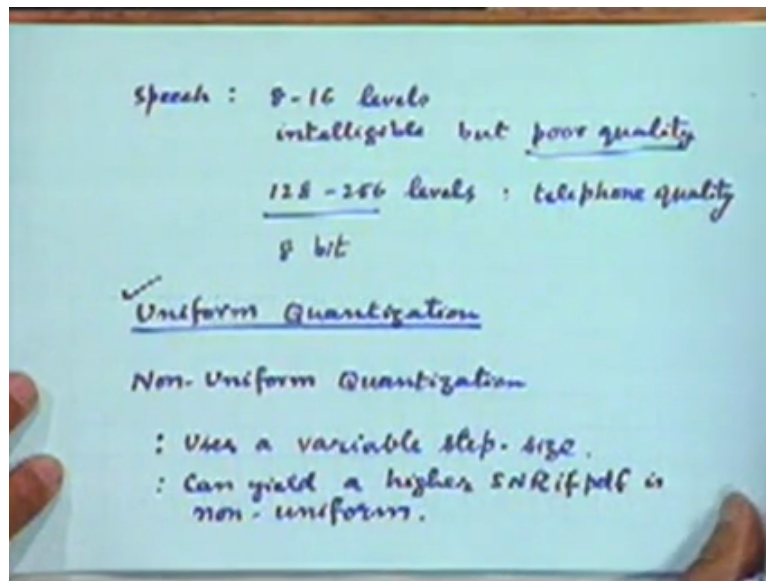 Speech : 8-16 levels
intelligible but poor quality
128-256 levels : telephone quality
8 bit
Uniform Quantization
Non-Uniform Quantization
: Uses a variable step-size.
: Can yield a higher SNR if pdf is
non-uniform.